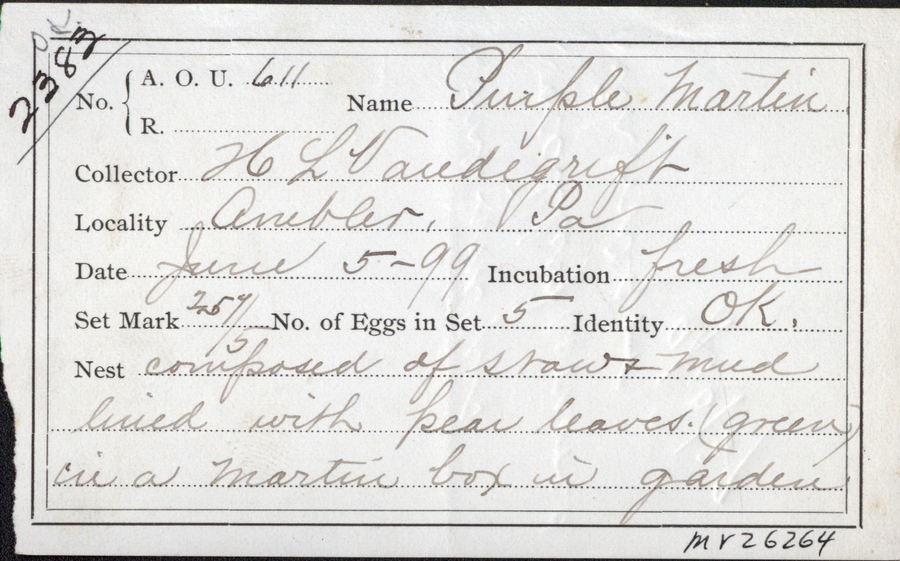 OK.
2382
No. A. O. U. 611 Name Purple Martin
R.
Collector H L Vandegrift
Locality Ambler, Pa
Date June 5-99 Incubation fresh
Set Mark 257/5 No. of Eggs in Set 5 Identity OK.
Nest composed of straw & mud
lined with pear leaves. (green)
in a martin box in garden
MV26264